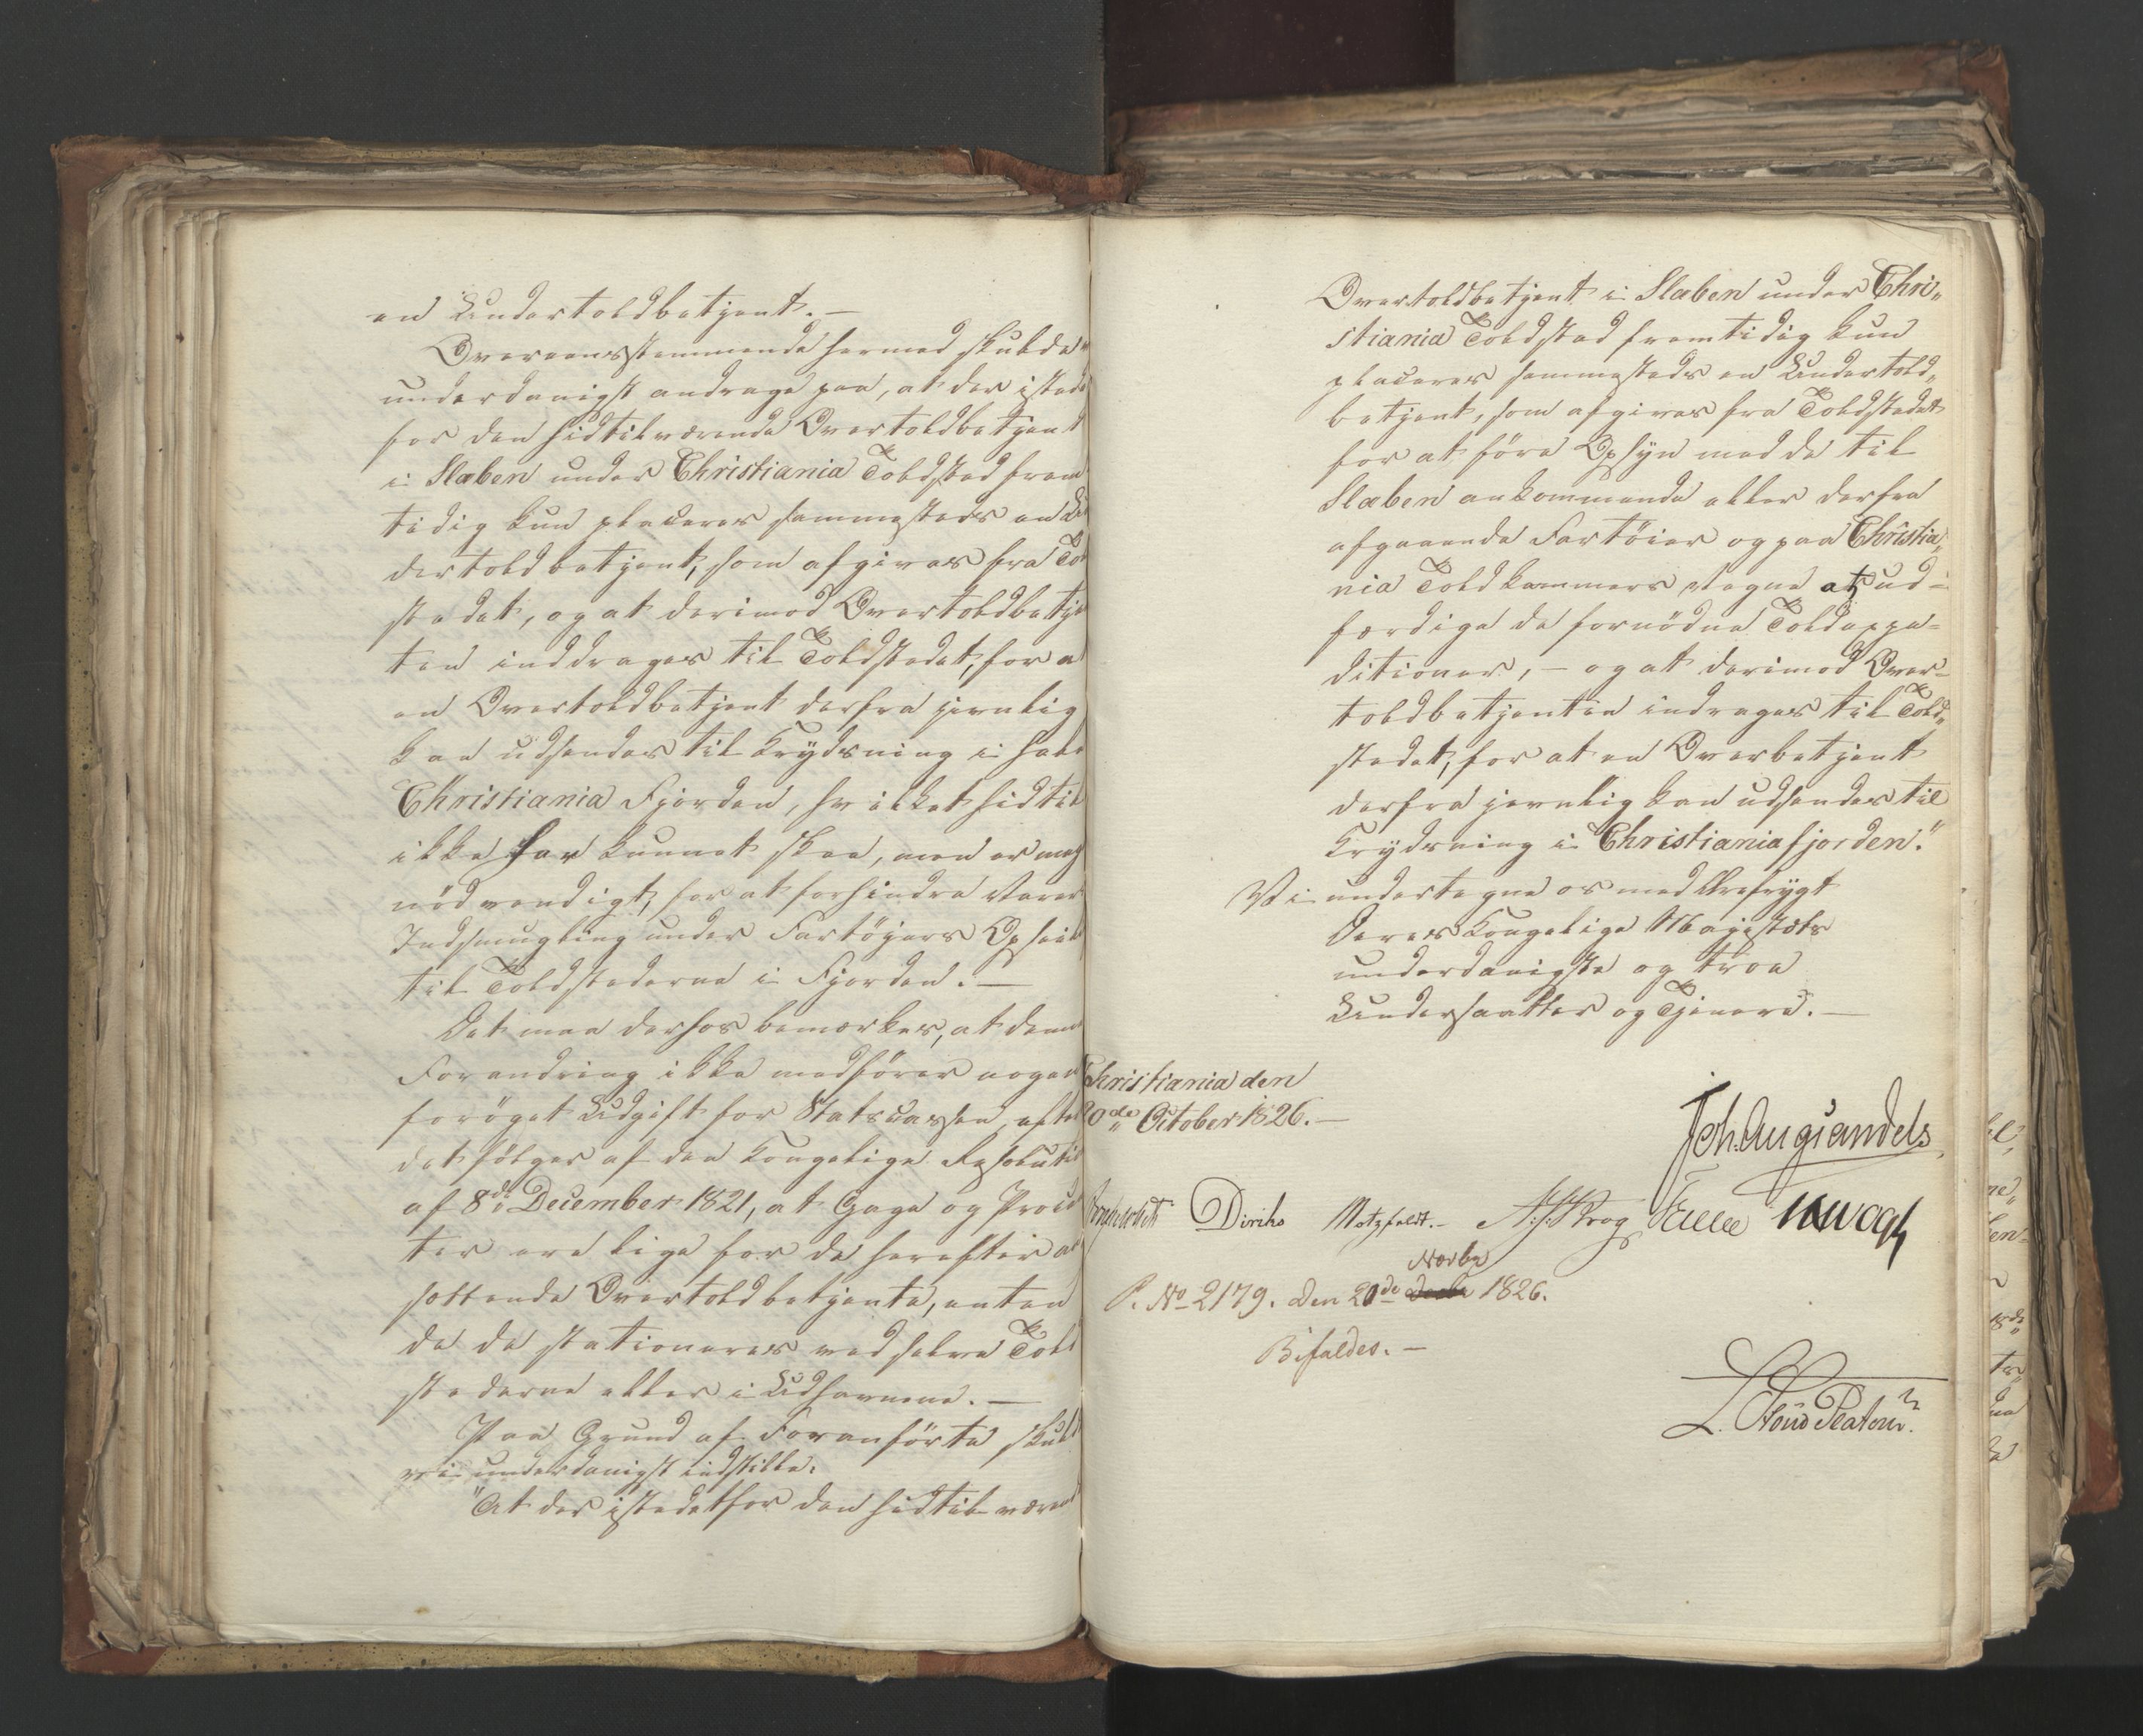 en Undertoldbetjent. —
Overeensstemmende hermed skulde
underdanigst andrage paa, at der istede
for den hidtilværende Overtoldbetjent
i Slæben under Christiania Toldsted frem
tidig kun placeres sammesteds en Un
dertoldbetjent, som afgives fra Tol
stedet, og at derimod Overtoldbetje
ten inddrages til Toldstedet, for a
en Overtoldbetjent derfra jevnlig
kan udsendes til Krydsning i hele
Christiania Fjorden, hvilket hidtil
ikke har kunnet skee, men er meg
nödvendigt, for at forhindre Varer
Indsmugling under Fartöyers Opseil
til Toldstederne i Fjorden. —
Det maa derhos bemærkes, at denne
Forandring ikke medförer nogen
foröget Udgift for Statscassen, efter
det fölger af den Kongelige Resoluti
af 8de December 1821, at Gage og Proce
ter ere lige for de herefter a
sættende Overtoldbetjente, enten
de de stationeres ved selve Told
stederne eller i Udhavnene. —
Paa Grund af Foranförte skuld
vi underdanigst indstille:
"At der istedetfor den hidtilværend
Overtoldbetjent i Slæben under Chri„
stiania Toldsted fremtidig kun
placeres sammesteds en Undertold„
betjent, som afgives fra Toldstedet
for at före Opsyn med de til
Slæben ankommende eller derfra
afgaaende Fartöier og paa Christia„
nia Toldkammers Vegne at ud-
færdige de fornödne Toldexpe-
ditioner, — og at derimod Over-
toldbetjenten indrages til Told„
stedet, for at en Overbetjent
derfra jevnlig kan udsendes til
Krydsning i Christianiafjorden."
Vi undertegne os med Ærefrygt
Deres Kongelige Majestæts
underdanigste og troe
Undersaatter og Tjenere. —
Christiania den
20de October 1826. —
Joh. Aug. Sandels
Diriks Motzfeldt. — Krog Fasting JHVogt
Novbr
P. No 2179. Den 20de 1826.
Bifaldes. —